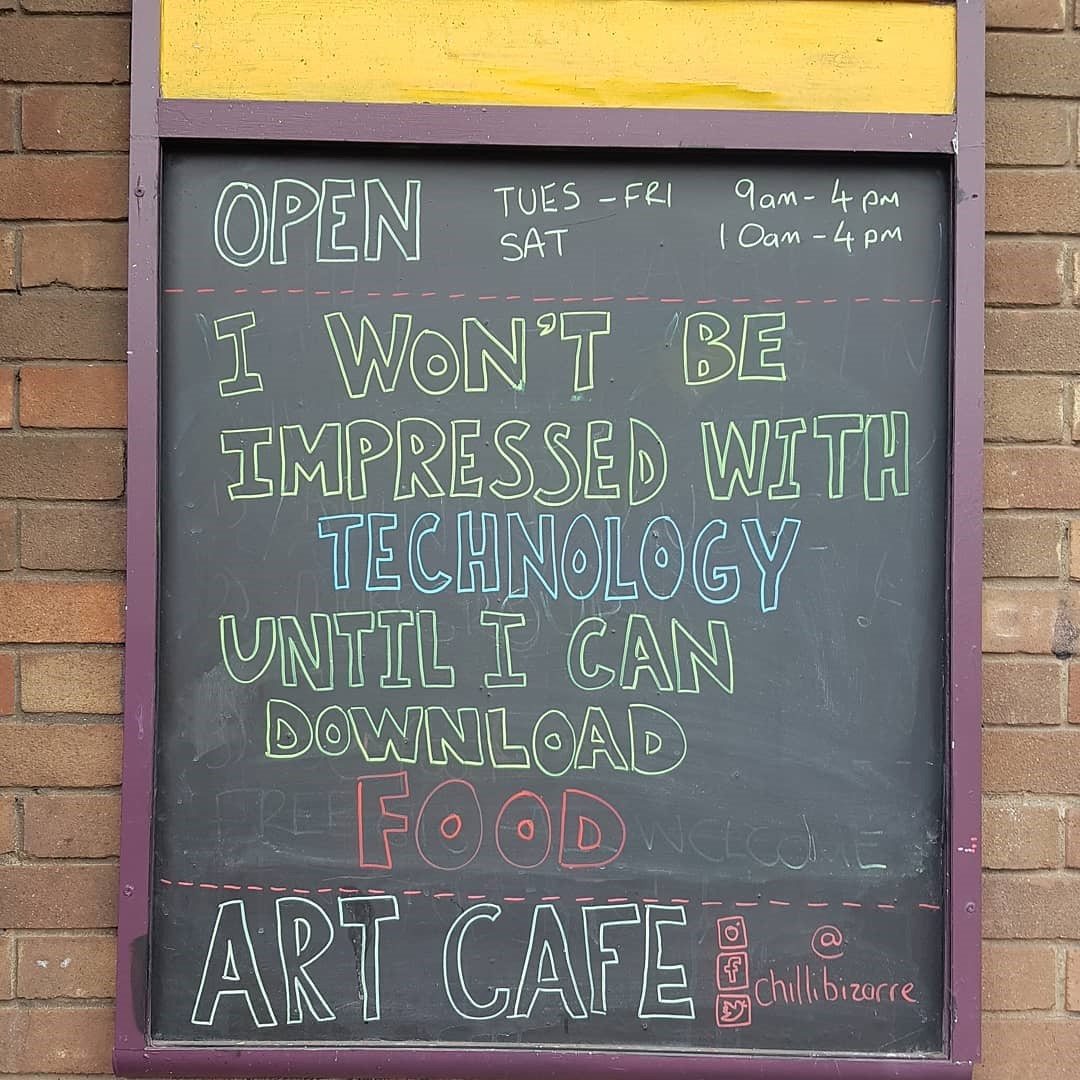 OPEN TUES - FRI 9am - 4 pm
SAT 10am - 4 pm
I WON'T BE
IMPRESSED WITH
TECHNOLOGY
UNTIL I CAN
DOWNLOAD
FOOD
FREE WELCOME
ART CAFE @
chillibizarre